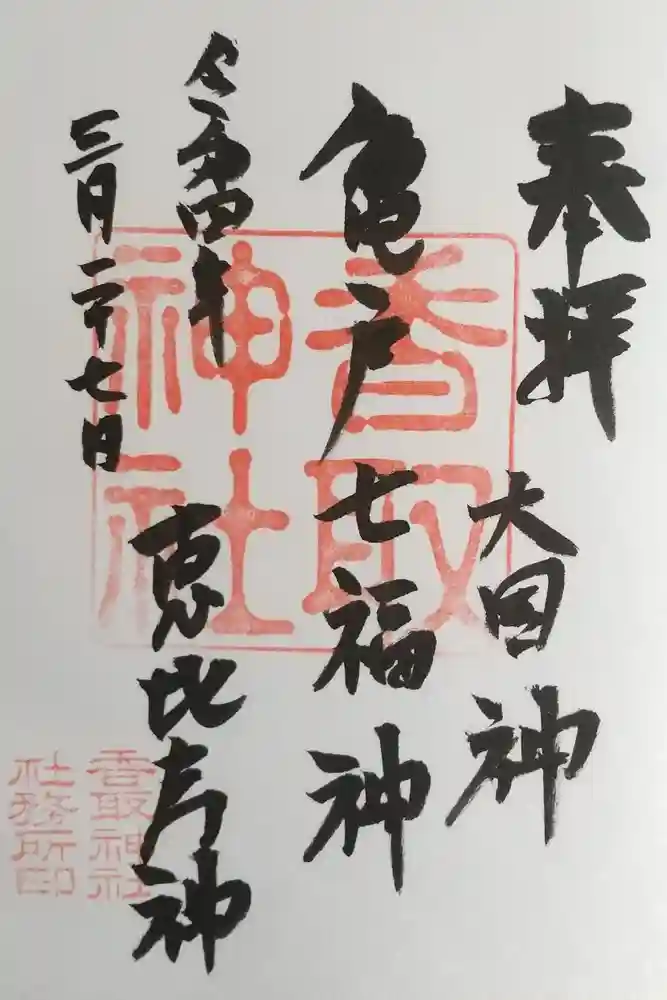 奉拝
大国神
亀戸七福神
恵比寿神
令和四年
三月二十七日
香取
神社
香取神社
社務所印